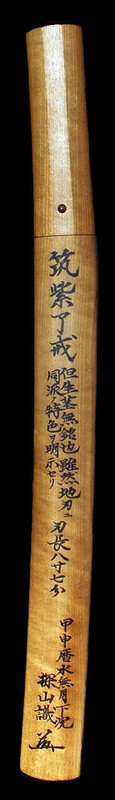 筑紫了戒
但生茎無銘也雖然地刃ニ
同派ノ特色ヲ明示セリ
刃長八寸七分
甲申暦水無月下浣
探山識